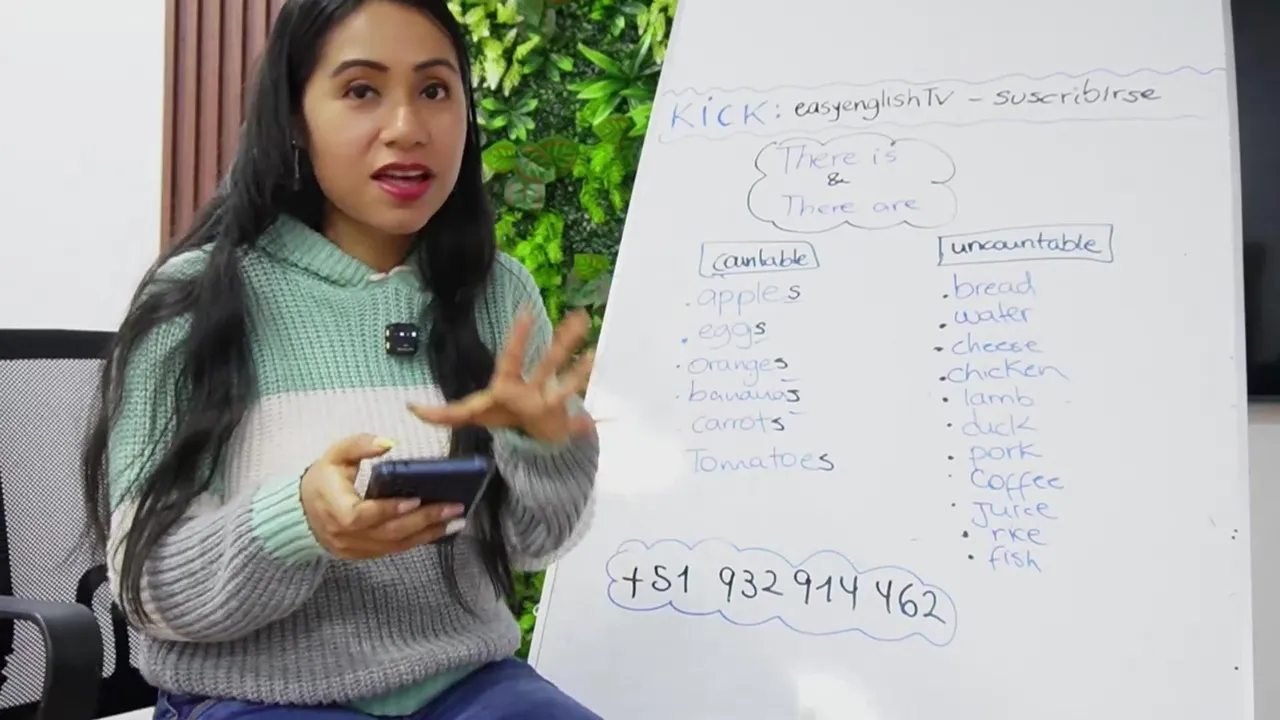 KiCK: easyenglishTV - suscribirse
There is
&
There are
countable
apples
eggs
oranges
bananas
carrots
Tomatoes
uncountable
bread
water
cheese
chicken
lamb
duck
pork
Coffee
Juice
rice
fish
+51 932 914 462